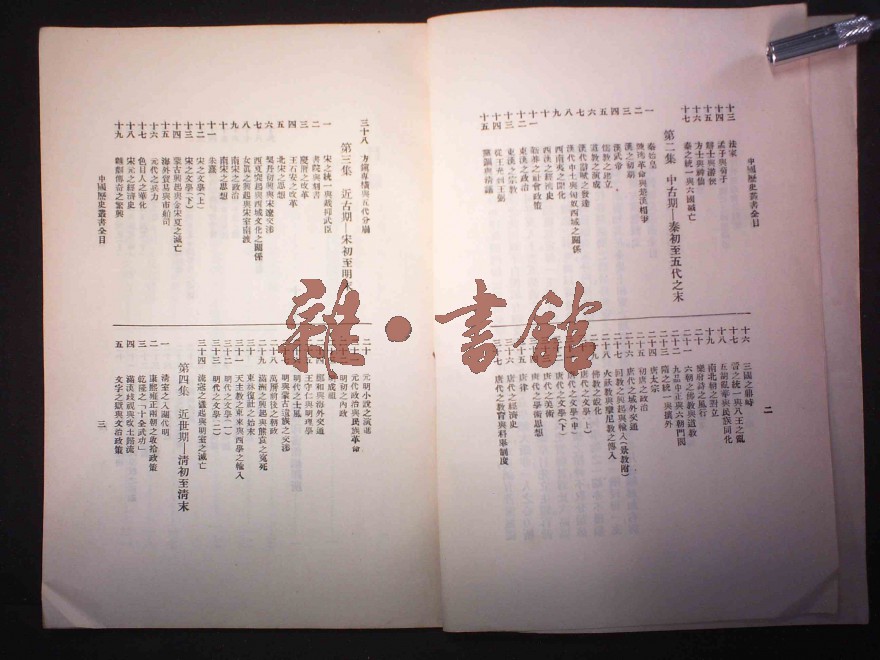 中國歷史叢書全目
二
十三 法家
十四 孟子與荀子
十五 辯士與游俠
十六 方士與神仙
十七 秦之統一與六國滅亡
第二集 中古期—秦初至五代之末
一 秦始皇
二 陳項革命與楚漢相爭
三 漢之初期
四 漢武帝
五 儒教之建立
六 道教之演成
七 漢代辭賦之發達
八 漢代中土與匈奴西域之關係
九 西南夷之開化
十 西漢之經濟史
十一 新莽之社會政策
十二 東漢之政治
十三 東漢之宗教
十四 從王充到王弼
十五 黨錮與清議
十六 三國之鼎峙
十七 晉之統一與八王之亂
十八 五胡亂華與民族同化
十九 南北朝之對立
二十 樂府詩之風行
二十一 六朝之佛教與道教
二十二 九品中正與六朝門閥
二十三 隋之統一與擴外
二十四 唐太宗
二十五 初唐之政治
二十六 唐代之域外交通
二十七 回教之興起與輸入(景教附)
二十八 火祆教與摩尼教之傳入
二十九 佛教之蛻化
三十 唐代之文學(上)
三十一 唐代之文學(中)
三十二 唐代之文學(下)
三十三 唐代之學術思想
三十四 唐代之美術
三十五 唐律
三十六 唐代之經濟史
三十七 唐代之教育與科舉制度
三十八 方鎮專橫與五代分崩
第三集 近古期—宋初至明
一 宋之統一與裁抑武臣
二 書院與刻書
三 慶曆之改革
四 王石安之改革
五 北宋之思想
六 契丹初興與宋遼交涉
七 西夏突起與西域文化之關係
八 女眞之興起與宋室南渡
九 南宋之政治
十 南宋之思想
十一 朱熹
十二 宋之文學(上)
十三 宋之文學(下)
十四 蒙古興起與金宋夏之滅亡
十五 海外貿易與市舶司
十六 元代之武力
十七 色目人之華化
十八 宋元之經濟史
十九 雜劇傳奇之繁興
二十 元明小說之演進
二十一 元代政治與民族革命
二十二 明初之內政
明成祖
鄭和與海外交通
王守仁與明理學
明代之士風
明與蒙古遺族之交涉
二十八 萬曆前後之朝政
二十九 滿洲之興起與熊袁之冤死
三十 東林復社之始末
三十一 天主教之東來與西學之輸入
三十二 明代之文學(一)
三十三 明代之文學(二)
三十四 流寇之蠭起與明室之滅亡
第四集 近世期—清初至清末
一 清室之入關代明
二 康熙雍正兩朝之收拾政策
三 乾隆之「十全武功」
四 滿漢歧視與改土歸流
五 文字之獄與文治政策
中國歷史叢書全目
三
雜·書館